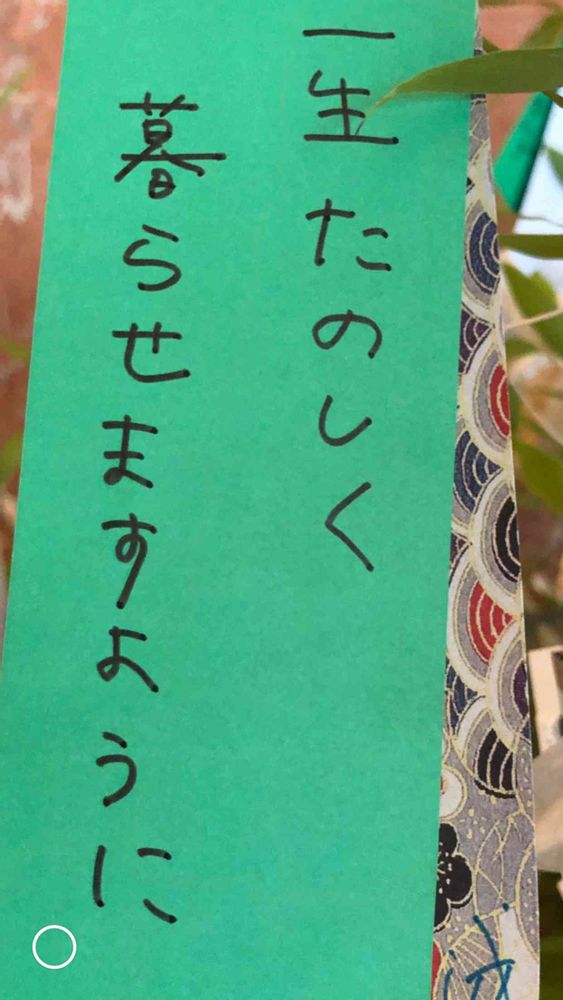 一生たのしく
暮らせますように